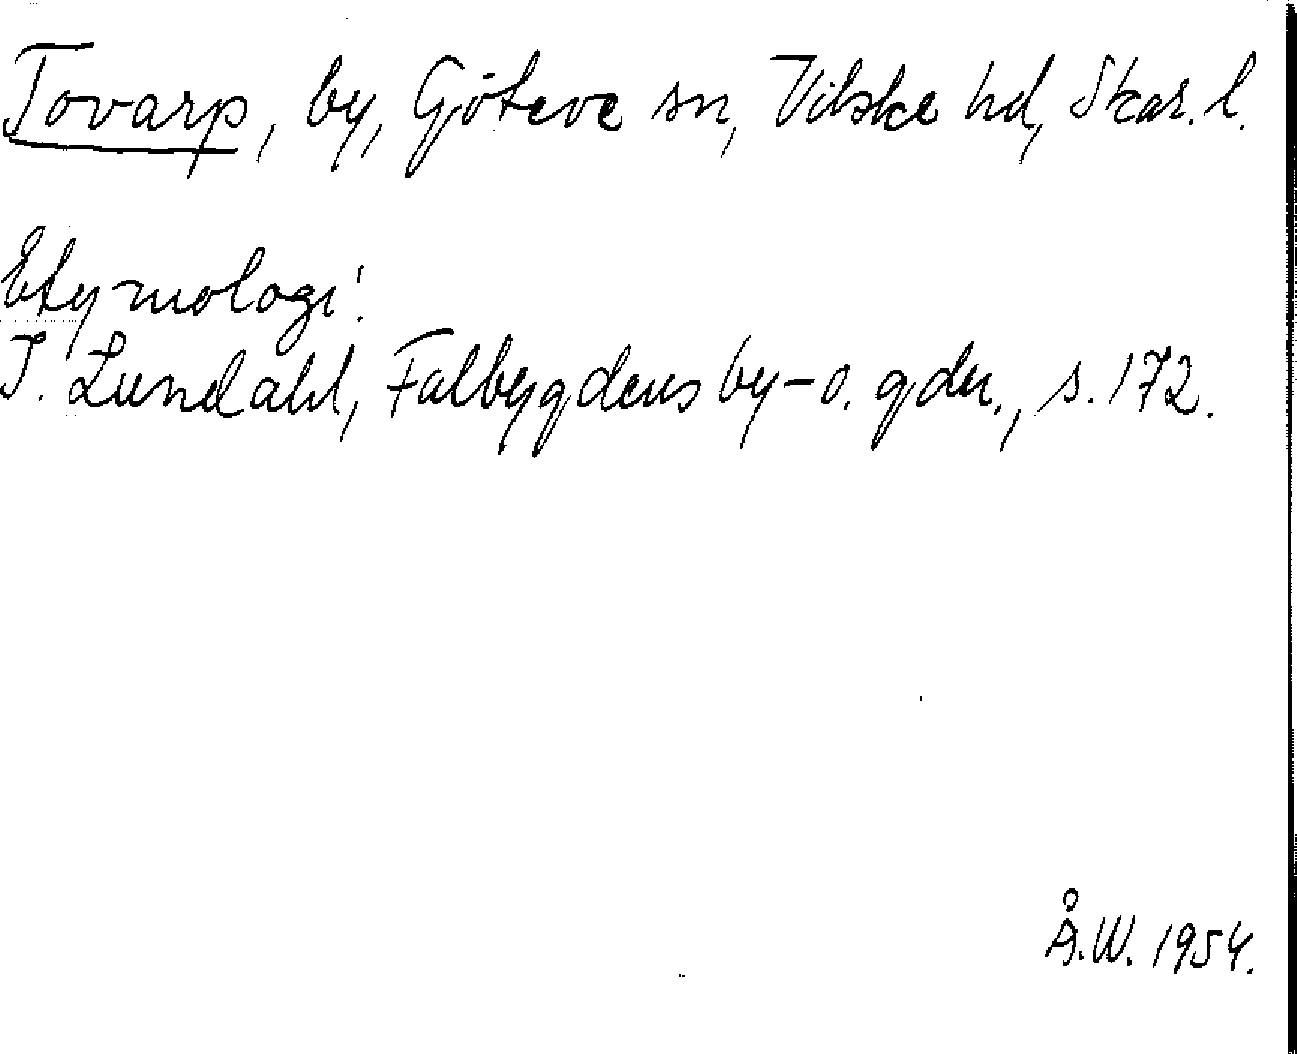 Tovarp, by, Gökeve sn, Vilske hd, Skar. l.
Etymologi:
I. Lundahl, Falbygdens by- o. gdn., s. 172.
Å.W. 1954.